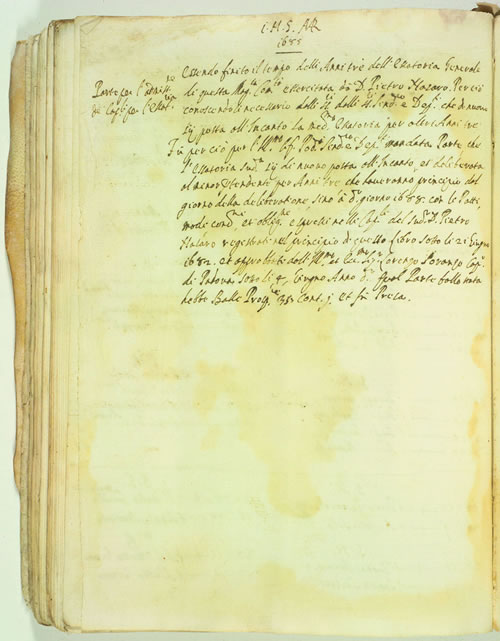 I.H.S. MR
1685
Parte per
di Cap.li per l'Esat.
Essendo finito il tempo delli Anni tre dell'Esatoria Generale
di questa Mag.ca Com.tà esercitata da D. Pietro Perciò
conoscendosi necessario dalli delli Sind.ci e Dep.ti che di nuovo
sij posta all'Incanto la med.ma Esatoria per altri Anni tre
Fù per ciò per mandata Parte che
l'Esatoria sud.ta sij di nuovo posta all'Incanto, et deliberata
al minor pertendente per Anni tre che haveranno principio dal
giorno della deliberatione sino à d.o giorno 1688. con le Patti,
modi cond.ni et oblig.ni espressi nelli Cap.li del Sud.o D. Pietro
registrati nel principio di questo libro sotto li 21 Giugno
1682. et approbati dall' Lorenzo Cap.o
di Padova Sotto li 4, Giugno Anno d.o qual Parte ballottata
hebbe Balle Prò 38 Cont. j. et fù Presa.